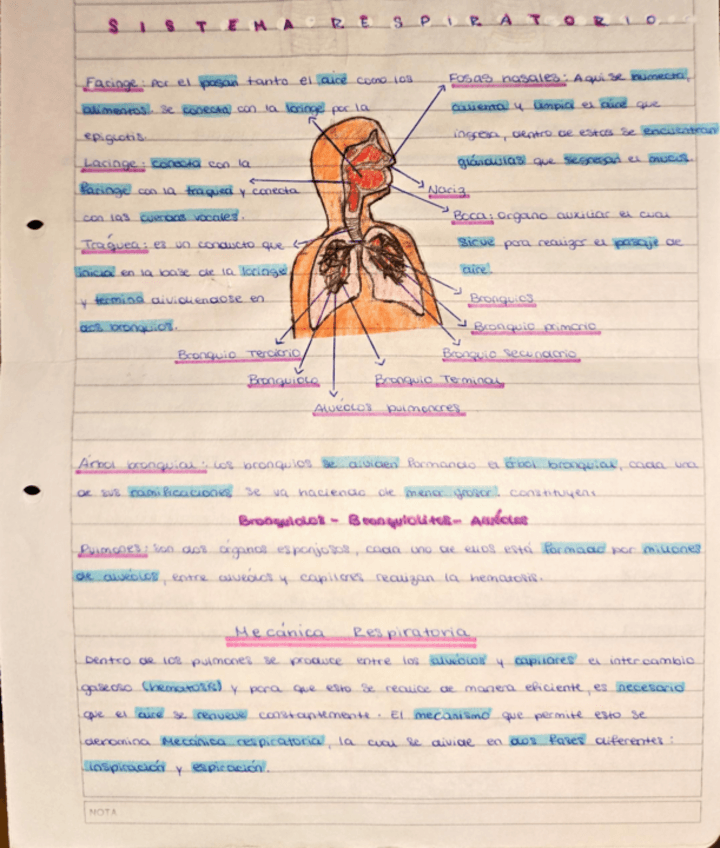 SISTEMA RESPIRATORIO
Faringe: Por el pasan tanto el aire como los
alimentos. Se conecta con la laringe por la
epiglotis.
Laringe: conecta con la
faringe con la traquea y conecta
con las cuerdas vocales.
Tráquea: es un conducto que
inicia en la base de la laringe
y termina dividiendose en
dos bronquios.
Fosas nasales: Aquí se humecta,
calienta y limpia el aire que
ingresa, dentro de estas se encuentran
glándulas que segregan el mucus.
Nariz
Boca: Organo auxiliar el cual
sirve para realizar el pasaje de
aire.
Bronquios
Bronquio primario
Bronquio Secundario
Bronquio Terciario
Bronquiolo
Bronquio Terminal
Alvéolos pulmonares
Árbol bronquial: Los bronquios se dividen formando el árbol bronquial, cada una
de sus ramificaciones se va haciendo de menor grosor. constituyen:
Bronquiolos - Bronquiolitos - Alvéolos
Pulmones: Son dos órganos esponjosos, cada uno de ellos está formado por millones
de alvéolos, entre alvéolos y capilares realizan la hematosis.
Mecánica Respiratoria
Dentro de los pulmones se produce entre los alvéolos y capilares el intercambio
gaseoso (hematosis) y para que esto se realice de manera eficiente, es necesario
que el aire se renueve constantemente. El mecanismo que permite esto se
denomina Mecánica respiratoria, la cual se divide en dos fases diferentes:
inspiración y espiración.
NOTA